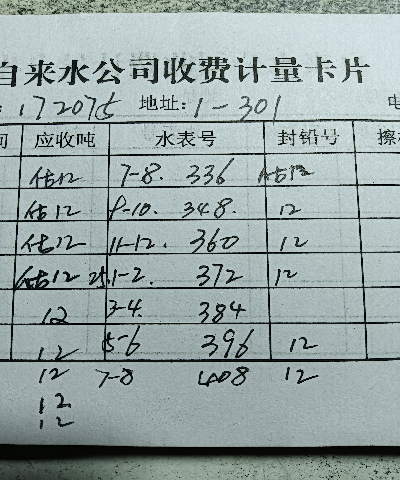 自来水公司收费计量卡片
: 172075 地址: 1-301 电
间 应收吨 水表号 封铅号 擦
估12 7-8. 336 估12
估12 9-10. 348. 12
估12 11-12. 360 12
估12 25.1-2. 372 12
12 3-4. 384
12 5-6 396 12
12 7-8 408 12
12
12